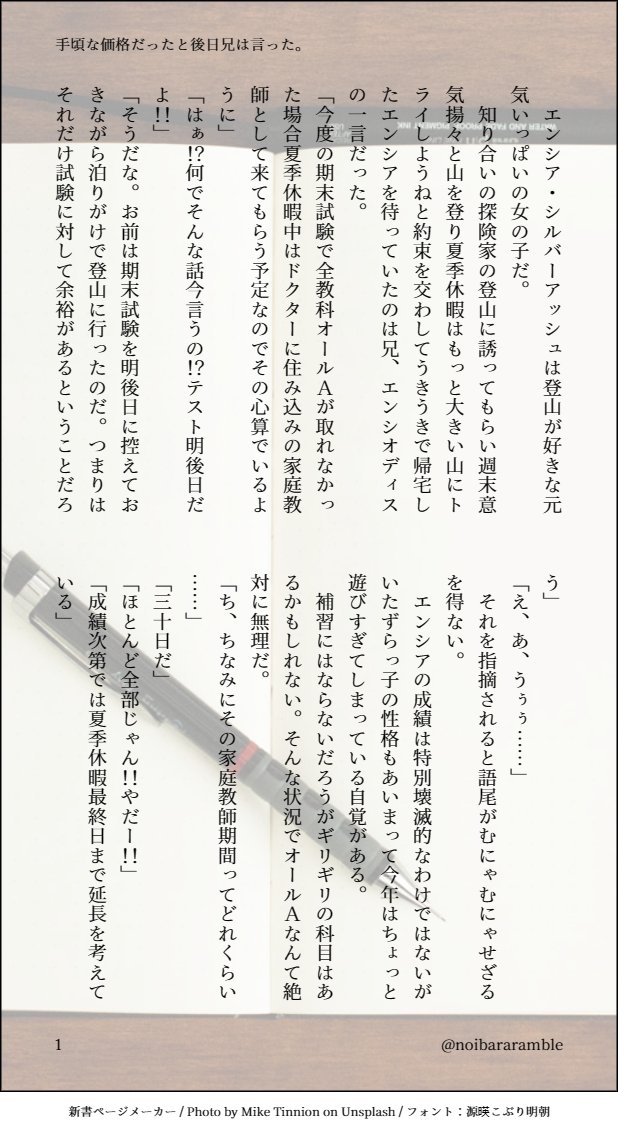 手頃な価格だったと後日兄は言った。
　エンシア・シルバーアッシュは登山が好きな元
気いっぱいの女の子だ。
　知り合いの探険家の登山に誘ってもらい週末意
気揚々と山を登り夏季休暇はもっと大きい山にト
ライしようねと約束を交わしてうきうきで帰宅し
たエンシアを待っていたのは兄、エンシオディス
の一言だった。
「今度の期末試験で全教科オールAが取れなかっ
た場合夏季休暇中はドクターに住み込みの家庭教
師として来てもらう予定なのでその心算でいるよ
うに」
「はぁ!?何でそんな話今言うの!?テスト明後日だ
よ!!」
「そうだな。お前は期末試験を明後日に控えてお
きながら泊りがけで登山に行ったのだ。つまりは
それだけ試験に対して余裕があるということだろ
う」
「え、あ、うぅぅ……」
　それを指摘されると語尾がむにゃむにゃせざる
を得ない。
　エンシアの成績は特別壊滅的なわけではないが
いたずらっ子の性格もあいまって今年はちょっと
遊びすぎてしまっている自覚がある。
　補習にはならないだろうがギリギリの科目はあ
るかもしれない。そんな状況でオールAなんて絶
対に無理だ。
「ち、ちなみにその家庭教師期間ってどれくらい
……」
「三十日だ」
「ほとんど全部じゃん!!やだー!!」
「成績次第では夏季休暇最終日まで延長を考えて
いる」
1
@noibararamble
新書ページメーカー / Photo by Mike Tinnion on Unsplash / フォント：源暎こぶり明朝